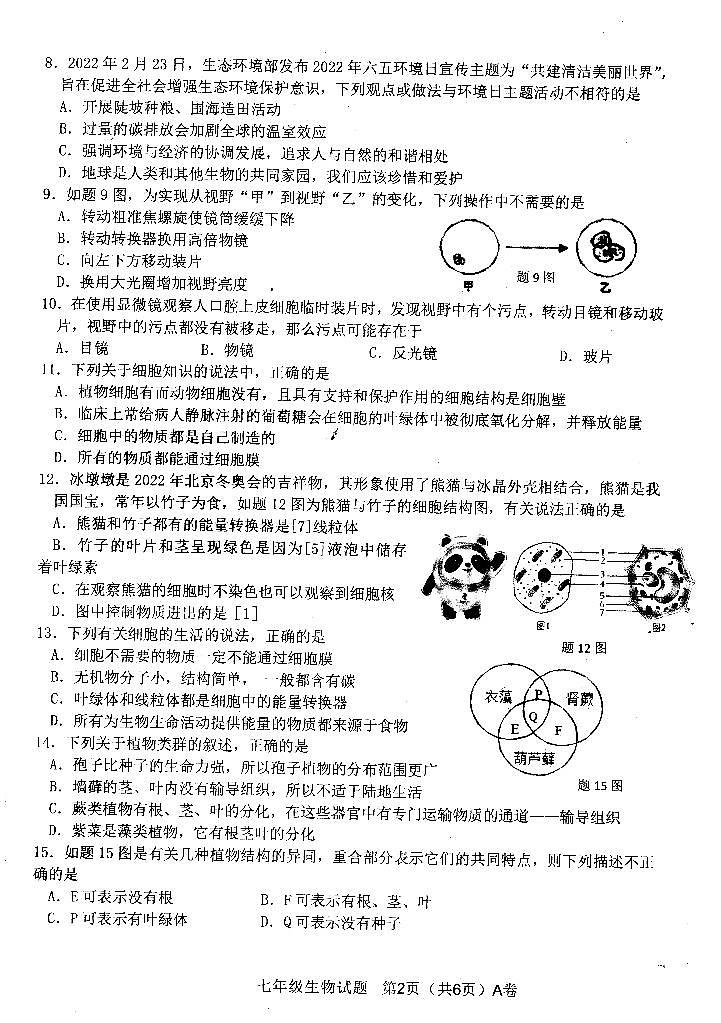 8．2022年2月23日，生态环境部发布2022年六五环境日宣传主题为“共建清洁美丽世界”，
旨在促进全社会增强生态环境保护意识，下列观点或做法与环境日主题活动不相符的是
A．开展陡坡种粮、围海造田活动
B．过量的碳排放会加剧全球的温室效应
C．强调环境与经济的协调发展，追求人与自然的和谐相处
D．地球是人类和其他生物的共同家园，我们应该珍惜和爱护
9．如题9图，为实现从视野“甲”到视野“乙”的变化，下列操作中不需要的是
A．转动粗准焦螺旋使镜筒缓缓下降
B．转动转换器换用高倍物镜
C．向左下方移动装片
D．换用大光圈增加视野亮度
甲 题9图 乙
10．在使用显微镜观察人口腔上皮细胞临时装片时，发现视野中有个污点，转动目镜和移动玻
片，视野中的污点都没有被移走，那么污点可能存在于
A．目镜 B．物镜 C．反光镜 D．玻片
11．下列关于细胞知识的说法中，正确的是
A．植物细胞有而动物细胞没有，且具有支持和保护作用的细胞结构是细胞壁
B．临床上常给病人静脉注射的葡萄糖会在细胞的叶绿体中被彻底氧化分解，并释放能量
C．细胞中的物质都是自己制造的
D．所有的物质都能通过细胞膜
12．冰墩墩是2022年北京冬奥会的吉祥物，其形象使用了熊猫与冰晶外壳相结合，熊猫是我
国国宝，常年以竹子为食，如题12图为熊猫与竹子的细胞结构图，有关说法正确的是
A．熊猫和竹子都有的能量转换器是[7]线粒体
B．竹子的叶片和茎呈现绿色是因为[5]液泡中储存
着叶绿素
C．在观察熊猫的细胞时不染色也可以观察到细胞核
D．图中控制物质进出的是［1］
1
2
3
4
5
6
7
图1 图2
题12图
13．下列有关细胞的生活的说法，正确的是
A．细胞不需要的物质一定不能通过细胞膜
B．无机物分子小，结构简单，一般都含有碳
C．叶绿体和线粒体都是细胞中的能量转换器
D．所有为生物生命活动提供能量的物质都来源于食物
衣藻 P 肾蕨
Q
E F
葫芦藓
题15图
14．下列关于植物类群的叙述，正确的是
A．孢子比种子的生命力强，所以孢子植物的分布范围更广
B．墙藓的茎、叶内没有输导组织，所以不适于陆地生活
C．蕨类植物有根、茎、叶的分化，在这些器官中有专门运输物质的通道——输导组织
D．紫菜是藻类植物，它有根茎叶的分化
15．如题15图是有关几种植物结构的异同，重合部分表示它们的共同特点，则下列描述不正
确的是
A．E可表示没有根 B．F可表示有根、茎、叶
C．P可表示有叶绿体 D．Q可表示没有种子
七年级生物试题 第2页（共6页）A卷